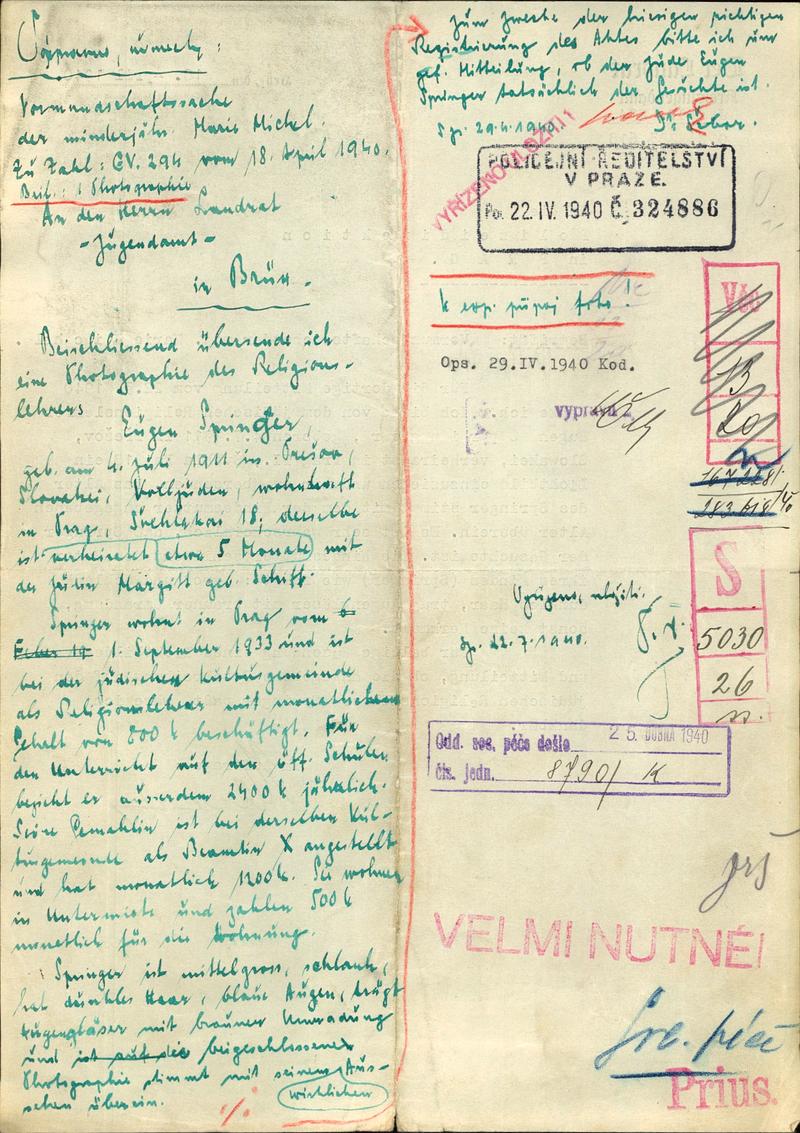 německy:
Vormundschaftssache
der minderjähr. Marie Michel.
Zu Zahl: GV. 294 vom 18. April 1940.
Beil.: 1 Photographie
An den Herrn Landrat
- Jugendamt -
in Brünn.
Beischliessend übersende ich
eine Photographie des Religions-
lehrers
Eugen Springer,
geb. am 4. Juli 1911 in Prešov,
Slovakei, Volljuden, wohnhaft
in Prag, 18; derselbe
ist verheiratet etwa 5 Monate mit
der Jüdin Margitt geb. Schiff.
Springer wohnt in Prag vom 6
1. September 1933 und ist
bei der jüdischen Kultusgemeinde
als Religionslehrer mit monatlichem
Gehalt von 800 K beschäftigt. Für
den Unterricht auf den öff. Schulen
bezieht er ausserdem 2400 K jährlich.
Seine Gemahlin ist bei derselben Kul-
tusgemeinde als Beamtin X angestellt
und hat monatlich 1200 K. Sie wohnen
in Untermiete und zahlen 500 K
monatlich für die Wohnung.
Springer ist mittelgross, schlank,
hat dunkles Haar, blaue Augen, trägt
Augengläser mit brauner Umradung
und ist auf der beigeschlossener
Photographie stimmt mit seinem Aus-
wirklichen
sehen überein.
Zum Zwecke der hiesigen richtigen
Registrierung des Aktes bitte ich um
gef. Mitteilung, ob der Jude Eugen
Springer tatsächlich der Gesuchte ist.
29.4.1940.
VYŘÍZENO
POLICEJNÍ ŘEDITELSTVÍ
V PRAZE.
22. IV. 1940 Č. 324886
k exp. připoj foto!
Věc
13
20
Ops. 29.IV.1940 Kod.
S
5030
26
22.7.1940.
Odd. soc. péče došlo 25. DUBNA 1940
čís. jedn. 8790/ K
VELMI NUTNÉ!
Prius.